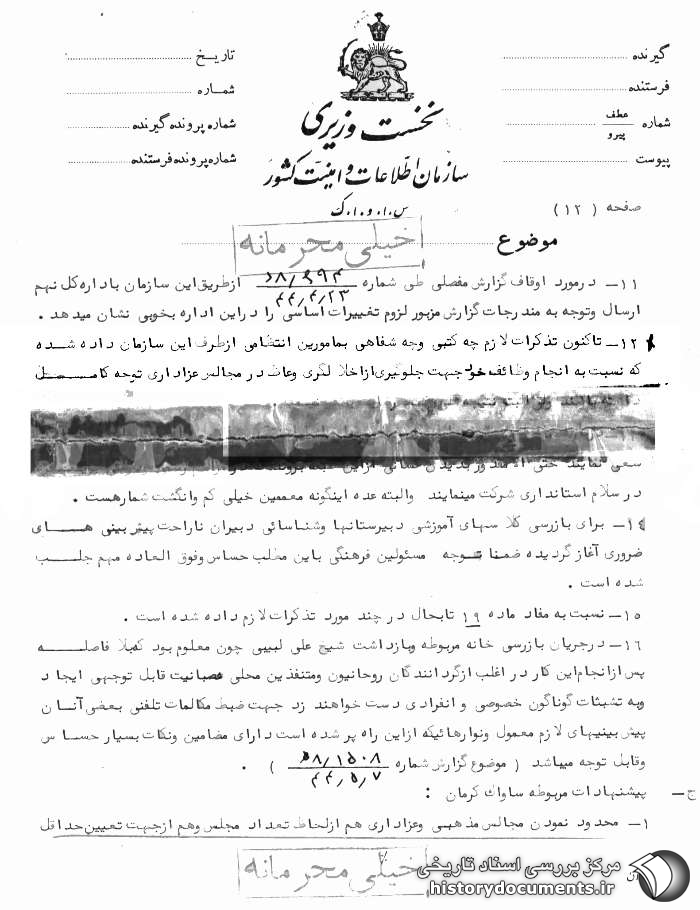 گیرنده
فرستنده
شماره عطف پیرو
پیوست
تاریخ
شماره
شماره پرونده گیرنده
شماره پرونده فرستنده
نخست وزیری
سازمان اطلاعات و امنیت کشور
س.ا.و.ا.ک
صفحه (۱۲)
خیلی محرمانه
موضوع
۱۱- درمورد اوقاف گزارش مفصلی طی شماره ازطریق این سازمان باداره کل نهم
۴۴/۴/۲۳
ارسال وتوجه به مندرجات گزارش مزبور لزوم تغییرات اساسی را دراین اداره بخوبی نشان میدهد .
۱۲- تاکنون تذکرات لازم چه کتبی وچه شفاهی بمامورین انتظامی ازطرف این سازمان داده شده
که نسبت به انجام وظائف خود جهت جلوگیری ازاخلالگری وعاظ در مجالس عزاداری توجه کامل
سعی نمایند حتی
در سلام استانداری شرکت مینمایند والبته عده اینگونه معممین خیلی کم وانگشت شمارهست .
۱۴- برای بازرسی کلاسهای آموزشی دبیرستانها وشناسائی دبیران ناراحت پیش بینی های
ضروری آغاز گردیده ضمنا توجه مسئولین فرهنگی باین مطلب حساس وفوق العاده مهم جلب
شده است .
۱۵- نسبت به مفاد ماده ۱۹ تابحال در چند مورد تذکرات لازم داده شده است .
۱۶- درجریان بازرسی خانه مربوطه وبازداشت شیخ علی لبیبی چون معلوم بود که بلا فاصله
پس ازانجام این کار در اغلب ازگردانندگان روحانیون ومتنفذین محلی عصبانیت قابل توجهی ایجاد
وبه تشبثات گوناگون خصوصی و انفرادی دست خواهند زد جهت ضبط مکالمات تلفنی بعضی آنان
پیش بینیهای لازم معمول ونوارهائیکه ازاین راه پر شده است دارای مضامین ونکات بسیار حساس
وقابل توجه میباشد ( موضوع گزارش شماره ۵۸/۱۵۰۸ ) .
۴۴/۵/۷
ج- پیشنهادات مربوطه ساواک کرمان :
۱- محدود نمودن مجالس مذهبی وعزاداری هم ازلحاظ تعداد مجلس وهم ازجهت تعیین حداقل
خیلی محرمانه
مرکز بررسی اسناد تاریخی
historydocuments.ir